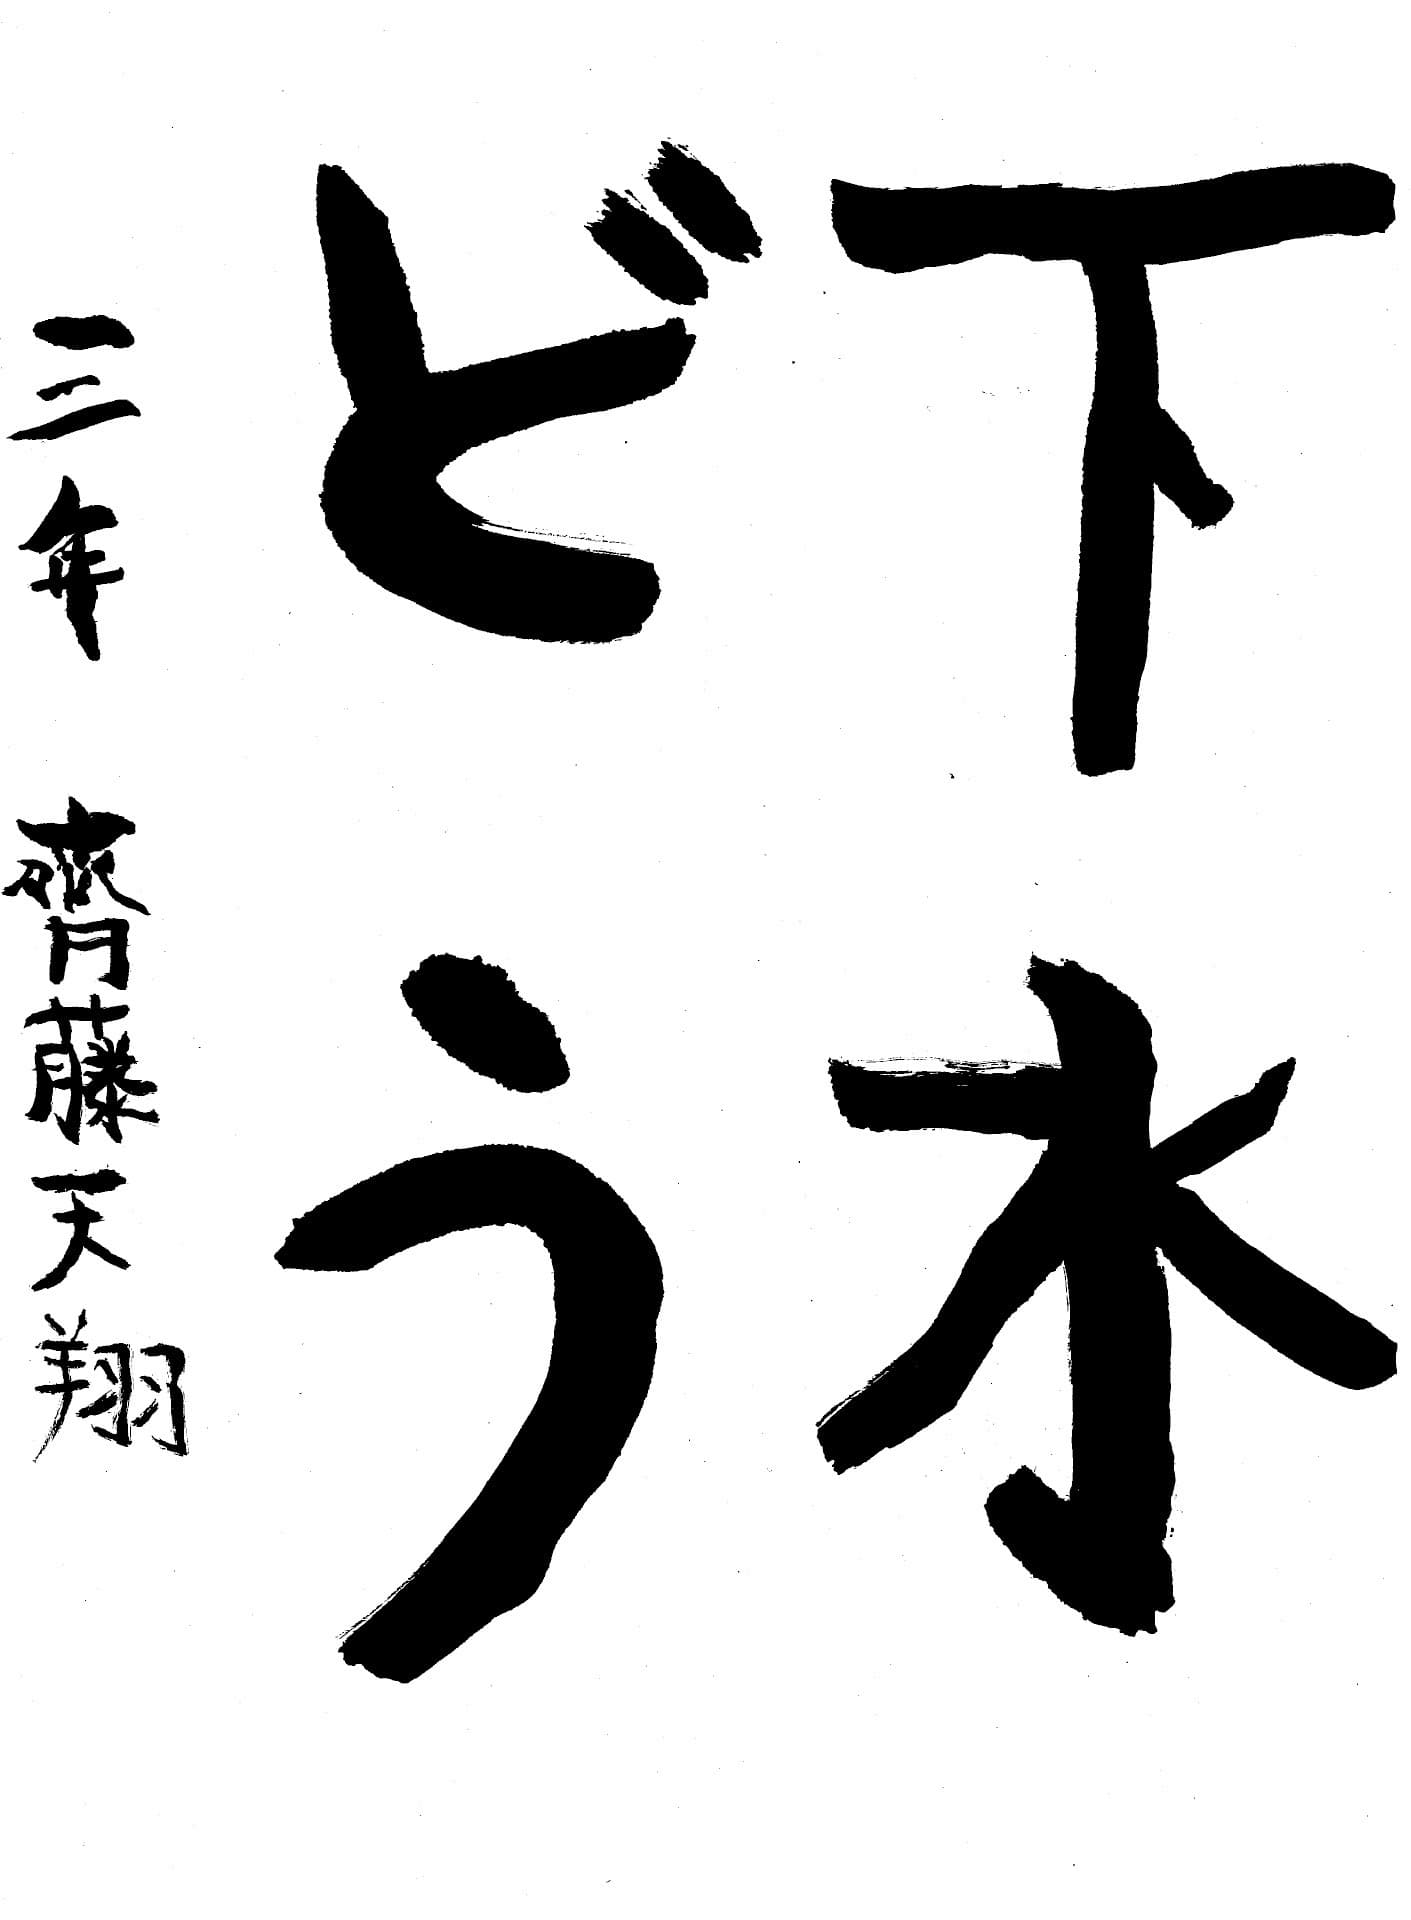 下水
どう
三年 齊藤天翔